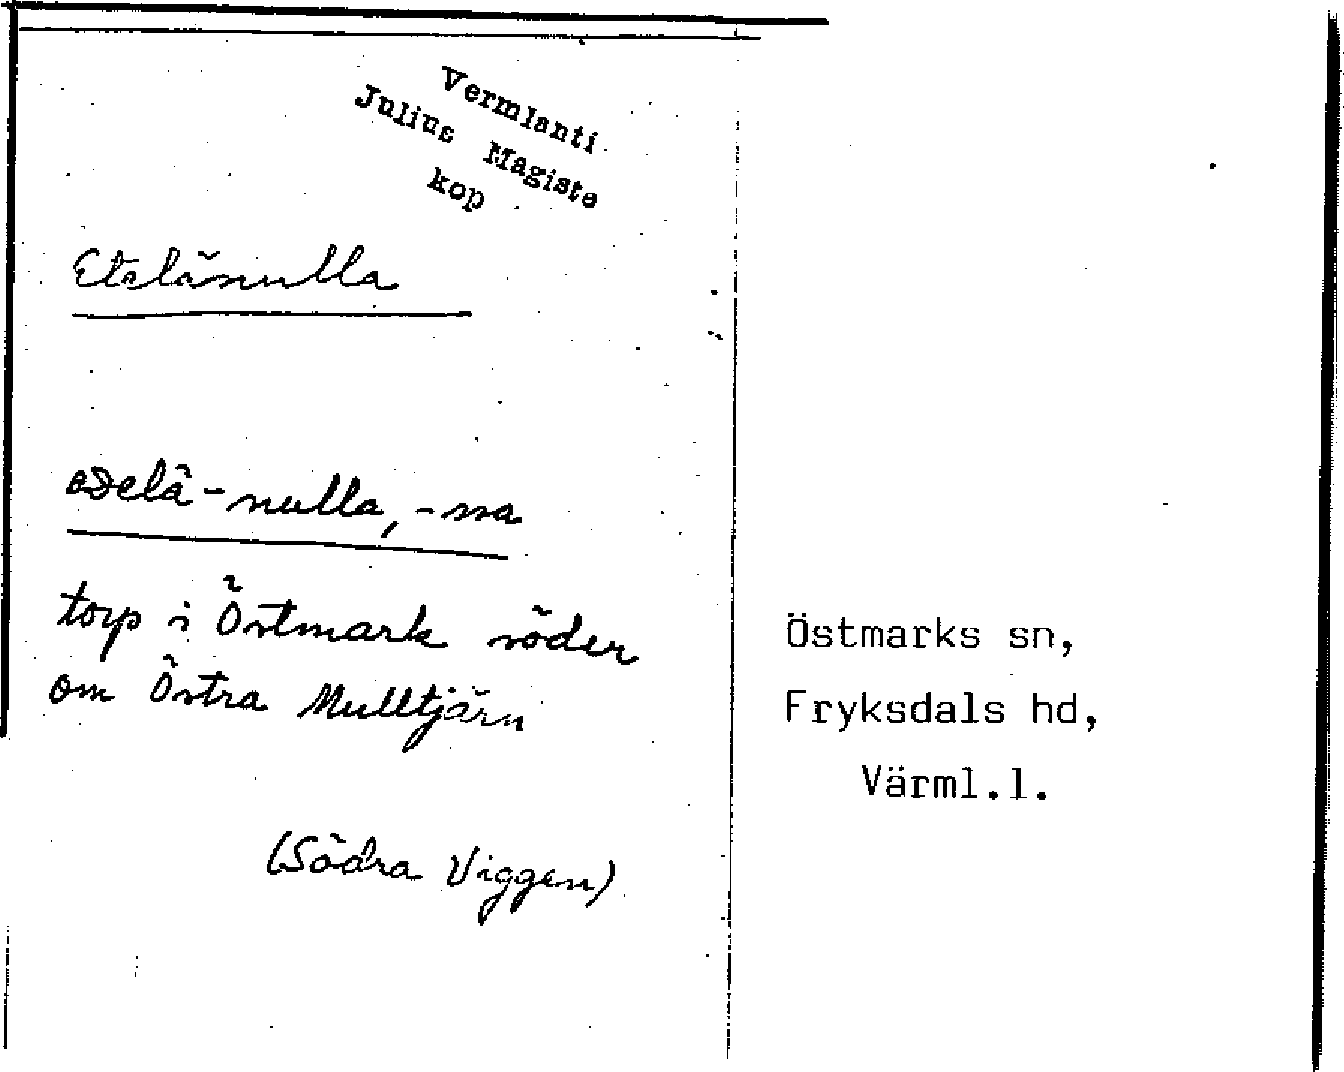 Vermlanti
Julius Mägiste
kop
Etelänulla
eðelä-nulla, -ssa
torp i Östmark söder
om Östra Mulltjärn
(Södra Viggen)
Östmarks sn,
Fryksdals hd,
Värml.l.